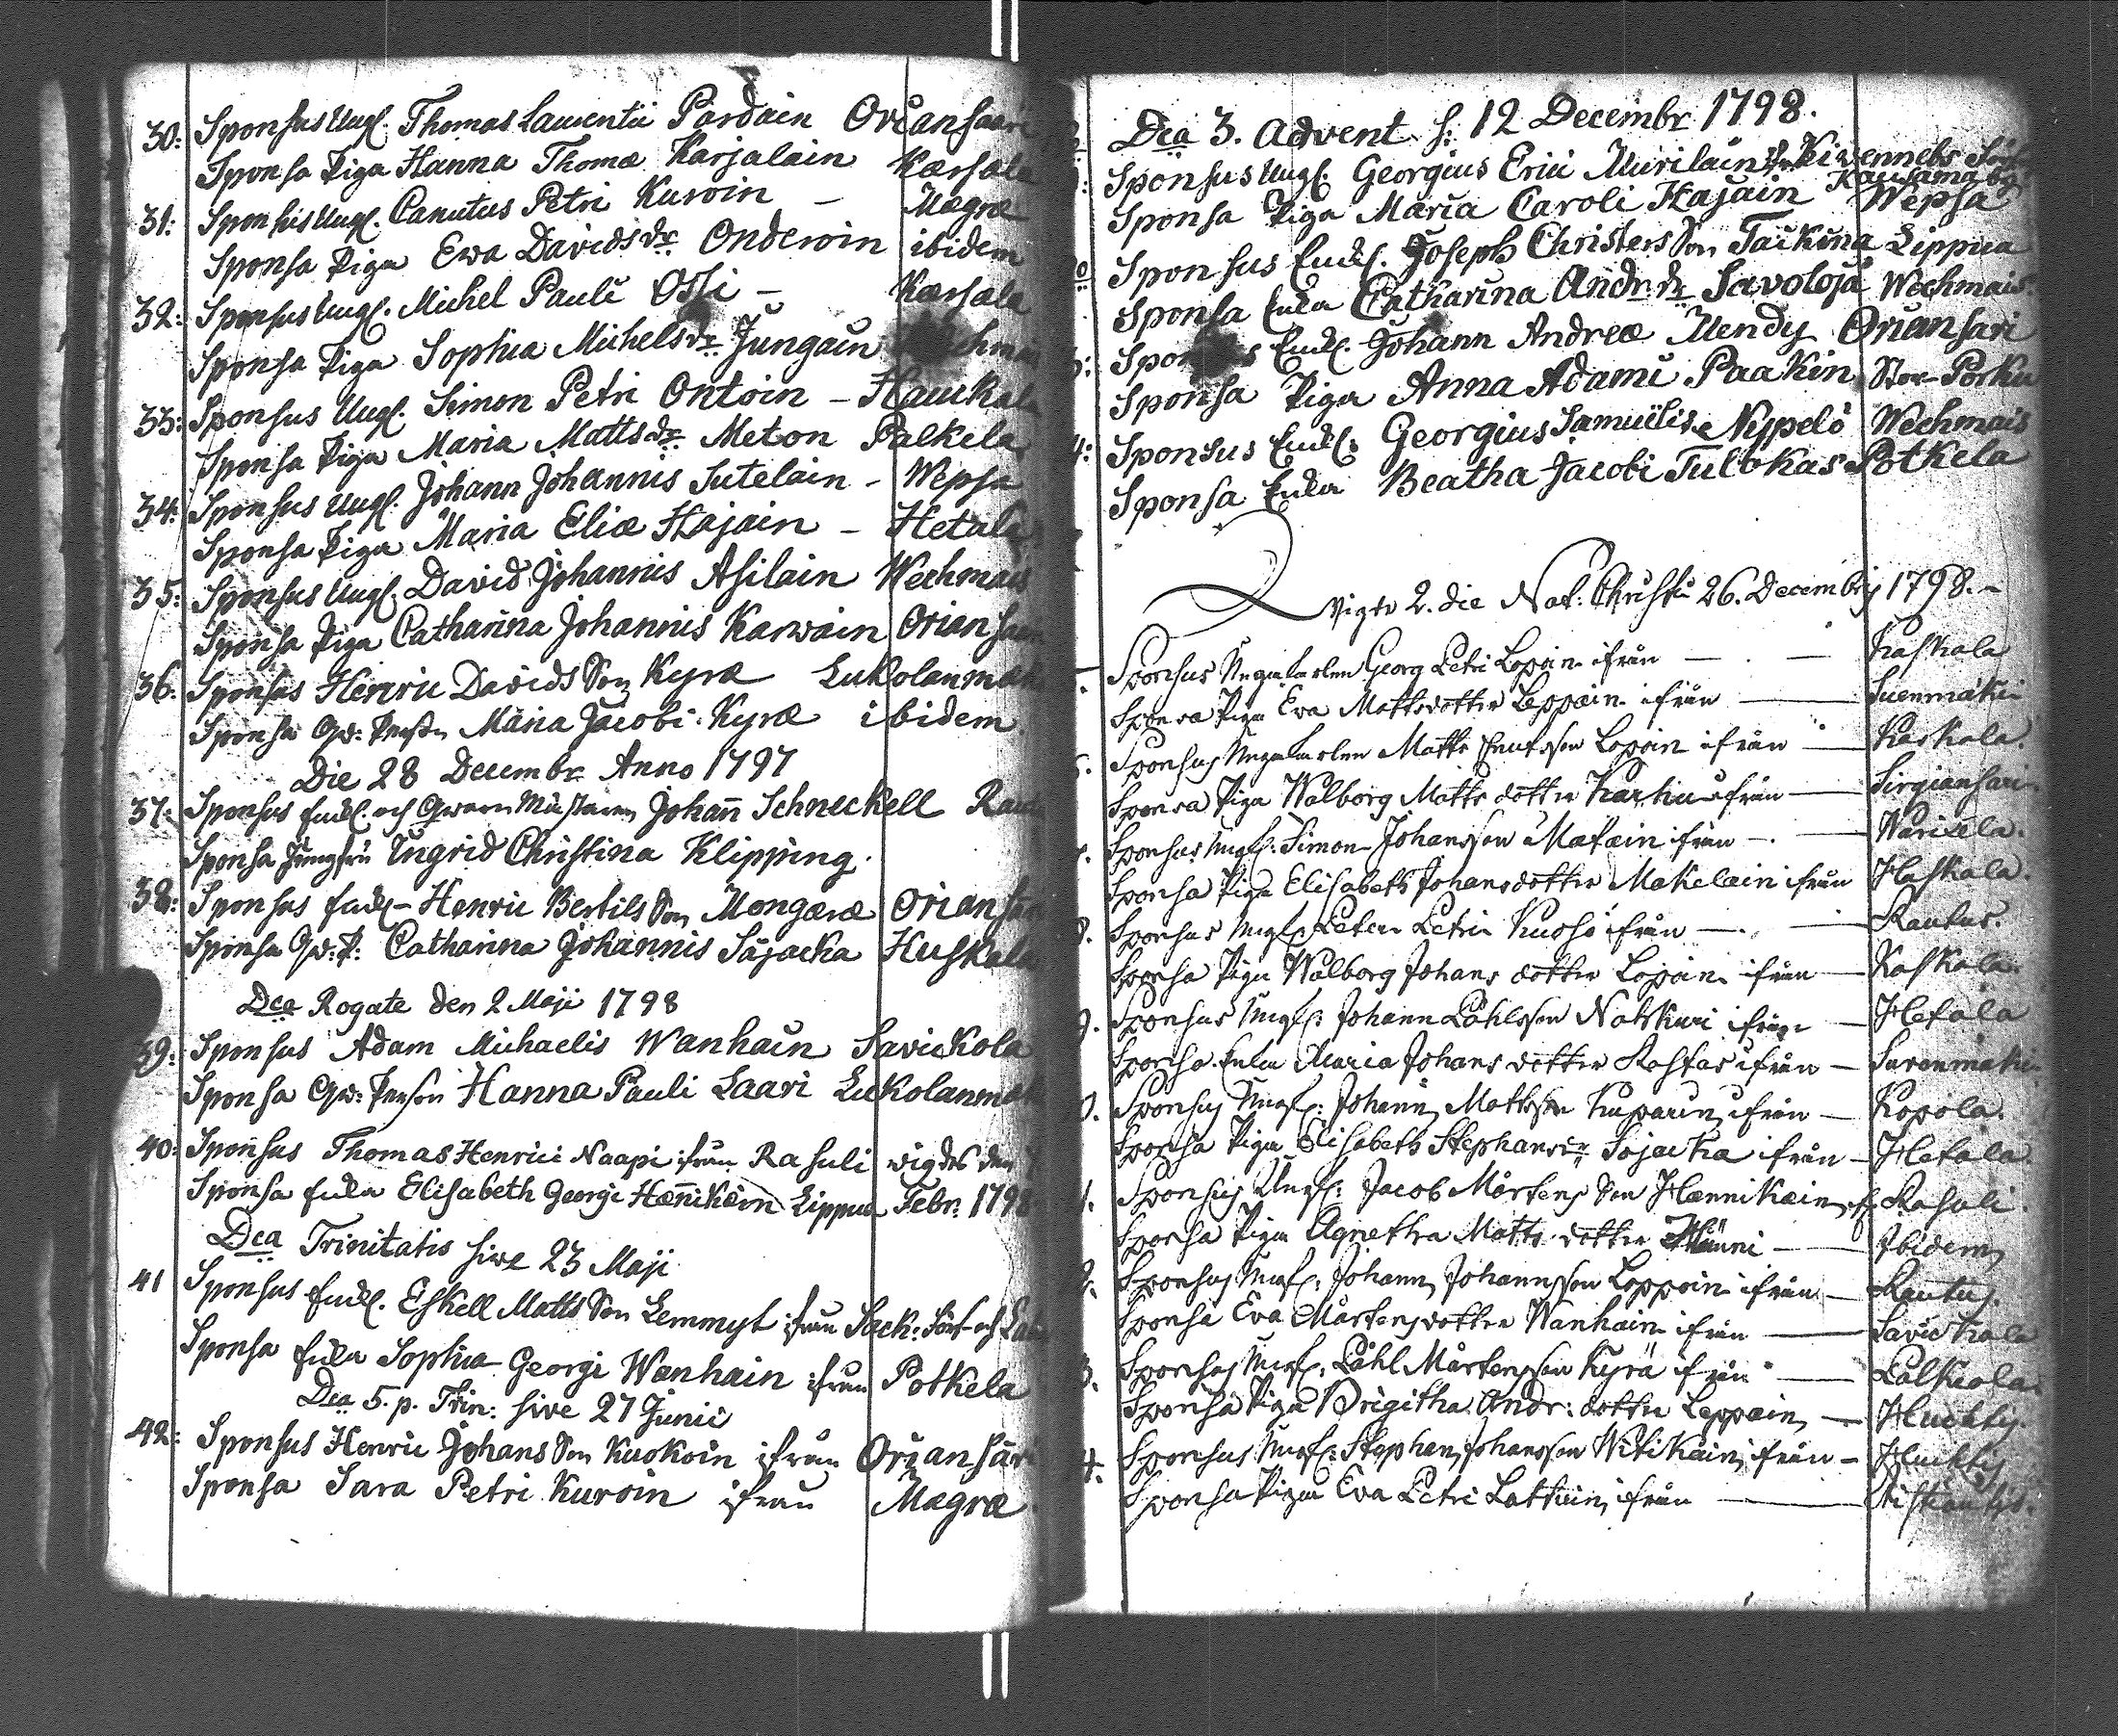 30: Sponsus Ungk. Thomas Laurentii Pärdäin Oriansaari
Sponsa Piga Hanna Thomæ Karjalain Kærsælæ
31: Sponsus Ungk. Canutus Petri Kuroin – Mægræ
Sponsa Piga Ewa Davidsdr Onderoin ibidem
32: Sponsus Ungk. Michel Pauli Ossi – Kærsælæ
Sponsa Piga Sophia Michelsdr Jungain
33: Sponsus Ungk. Simon Petri Ontoin – Haukala
Sponsa Piga Maria Mattsdr Meton Palkela
34: Sponsus Ungk. Johann Johannis Sutelain – Wepsa
Sponsa Piga Maria Eliæ Hajain – Hetala
35: Sponsus Ungk. David Johannis Asilain Wechmais
Sponsa Piga Catharina Johannis Karwain Oriansaari
36: Sponsus Henric Davids Son Kyræ Lukolanmäki
Sponsa Qw: Person Maria Jacobi Kyræ ibidem
Die 28 Decembr Anno 1797
37: Sponsus Enkl. och Qwarn Mästaren Johan̄ Schneckell
Sponsa Jungfru Ingrid Christina Klipping.
38: Sponsus Enkl – Henric Bertils Son Mongæræ Oriansaari
Sponsa Qw: P: Catharina Johannis Säjacka Huskala
Dca Rogate den 2 Maji 1798
39: Sponsus Adam Michaelis Wanhain Savickola
Sponsa Qw: Person Hanna Pauli Laari Luckolanmäki
40: Sponsus Thomas Henrici Naapi ifrån Rasuli wigdes den
Sponsa Enka Elisabeth Georgi Hæn̄ikäin Lippua Febr: 1798
Dca Trinitatis sive 23 Maji
41 Sponsus Enkl. Eskell Matts Son Lemmyt ifrån Sack: Sok och
Sponsa Enka Sophia Georgi Wanhain ifrån Potkela
Dca 5. p. Trin: sive 27 Junii
42: Sponsus Henric Johans Son Kuokoin ifrån Oriansari
Sponsa Sara Petri Kuroin ifrån Mægræ
Dca 3. Advent s: 12 Decembr 1798.
Sponsus Ungk. Georgius Erici Muurilain Kiwennebs
Kausama by
Sponsa Piga Maria Caroli Hajain Wepsa
Sponsus Enkl. Joseph Christers Son Taickina Lippua
Sponsa Enka Catharina Andr. dr Savoloja Wechmais
Sponsus Enkl. Johann Andreæ Mendy Oriansari
Sponsa Piga Anna Adami Paakin Stor-Porku
4: Sponsus Enkl: Georgius Samuelis Nyppelö Wechmais
Sponsa Enka Beatha Jacobi Tulokas Potkela
Vigde 2. die Nat: Christi 26. Decembris 1798. –
Sponsus Georg Petri Lopoin ifrån — Kaskala
Sponsa Piga Eva Mattsdotter Leppain ifrån — Suenmäki
Sponsus Matts Lopoin ifrån — Kaskala.
Sponsa Piga Walborg Matts dotter Karhu ifrån — Sirgiansari
Sponsus Ungk: Simon Johansson Matain ifrån — Waricela.
Sponsa Piga Elisabeth Johansdotter Makelain ifrån Haskala.
8. Sponsus Ungk: Peter Petri Kuosi ifrån — Rautus.
Sponsa Piga Walborg Johans dotter Lopoin ifrån — Kaskala.
9. Sponsus Ungk: Johann Påhlsson Natskuri ifrån — Hetala
Sponsa Enka Maria Johans dotter Rastas ifrån — Suvenmäki
0. Sponsus Ungk: Johann Mattsson ifrån — Kopola.
Sponsa Piga Elisabeth Stephansdr Sojacka ifrån — Hetala
1. Sponsus Ungk: Jacob Mårtens Son Hænnikæin, if. Rasuli.
Sponsa Piga Agnetha Matts dotter Hänni — Ibidem
2. Sponsus Ungk: Johann Johannsson Loppoin ifrån — Rautus.
Sponsa Eva Mårtensdotter Wanhain ifrån — Savickala
3. Sponsus Ungk: Påhl Mårtensson Kyrä ifrån — Palkeala.
Sponsa Piga Brigitha Andr: dotter Leppain, — Huhtis
4. Sponsus Ungk: Stephan Johansson Witikain ifrån – Huhtis
Sponsa Piga Eva Petri ifrån —